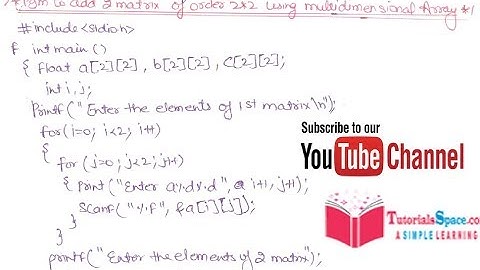 /*Pgm to add 2 matrix of order 2*2 using multidimensional Array */
#include <stdio.h>
int main ()
{ float a[2][2], b[2][2], C[2][2];
int i, j;
Printf(" Enter the elements of 1st matrix\n");
for(i=0; i<2; i++)
{
for (j=0; j<2; j++)
{ Print ("Enter a%d%d", i+1, j+1);
Scanf("%f", &a[i][j]);
}
}
printf(" Enter the elements of 2 matrix");
Subscribe to our
YouTube Channel
TutorialsSpace.co
A SIMPLE LEARNING